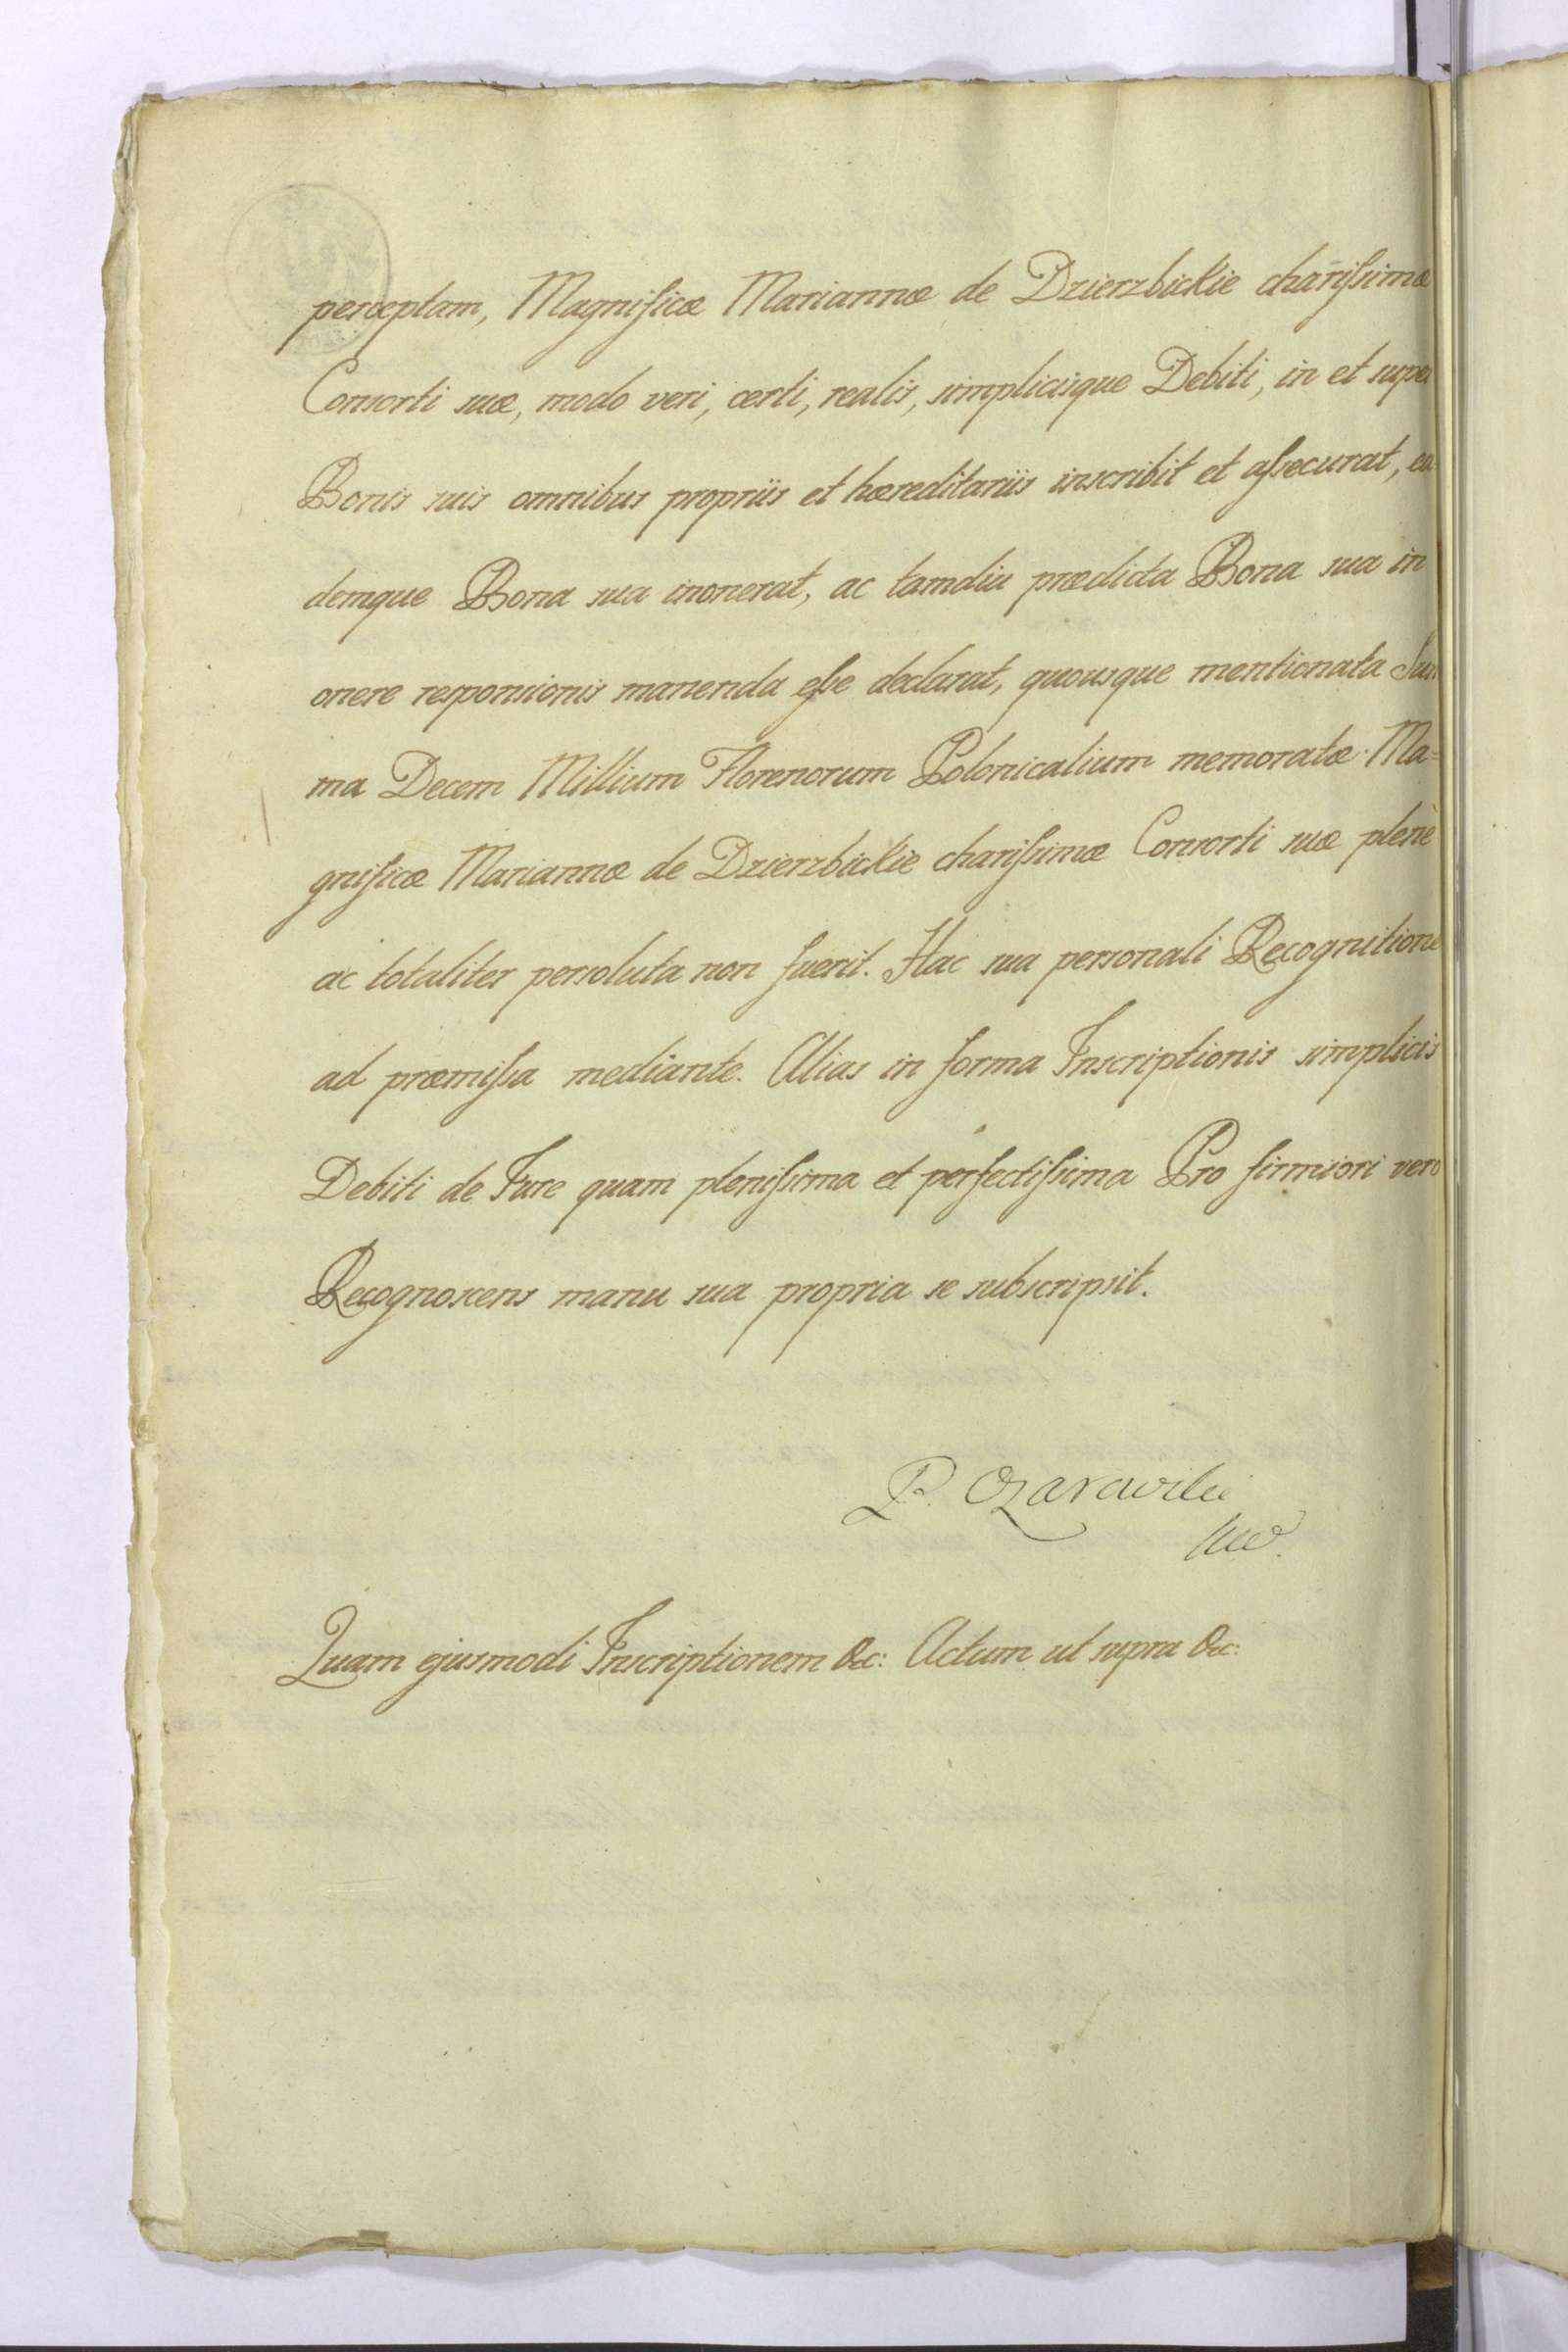 perceptam, Magnificæ Mariannæ de Dzierzbickie charissimæ
Consorti suæ, modo veri, certi, realis, simplicisque Debiti, in et super
Bonis suis omnibus propriis et hæreditariis inscribit et assecurat, ea
demque Bona sua inonerat, ac tamdiu prædicta Bona sua in
onere responsionis manenda esse declarat, quousque mentionata Sum
ma Decem Millium Florenorum Polonicalium memoratæ Ma=
gnificæ Mariannæ de Dzierzbickie charissimæ Consorti suæ plenè
ac totaliter persoluta non fuerit. Hac sua personali Recognitione
ad præmissa mediante. Alias in forma Inscriptionis simplicis
Debiti de Jure quam plenissima et perfectissima Pro firmiori vero
Recognoscens manu sua propria se subscripsit.
P.
Quam ejusmodi Inscriptionem &c: Actum ut supra &c: